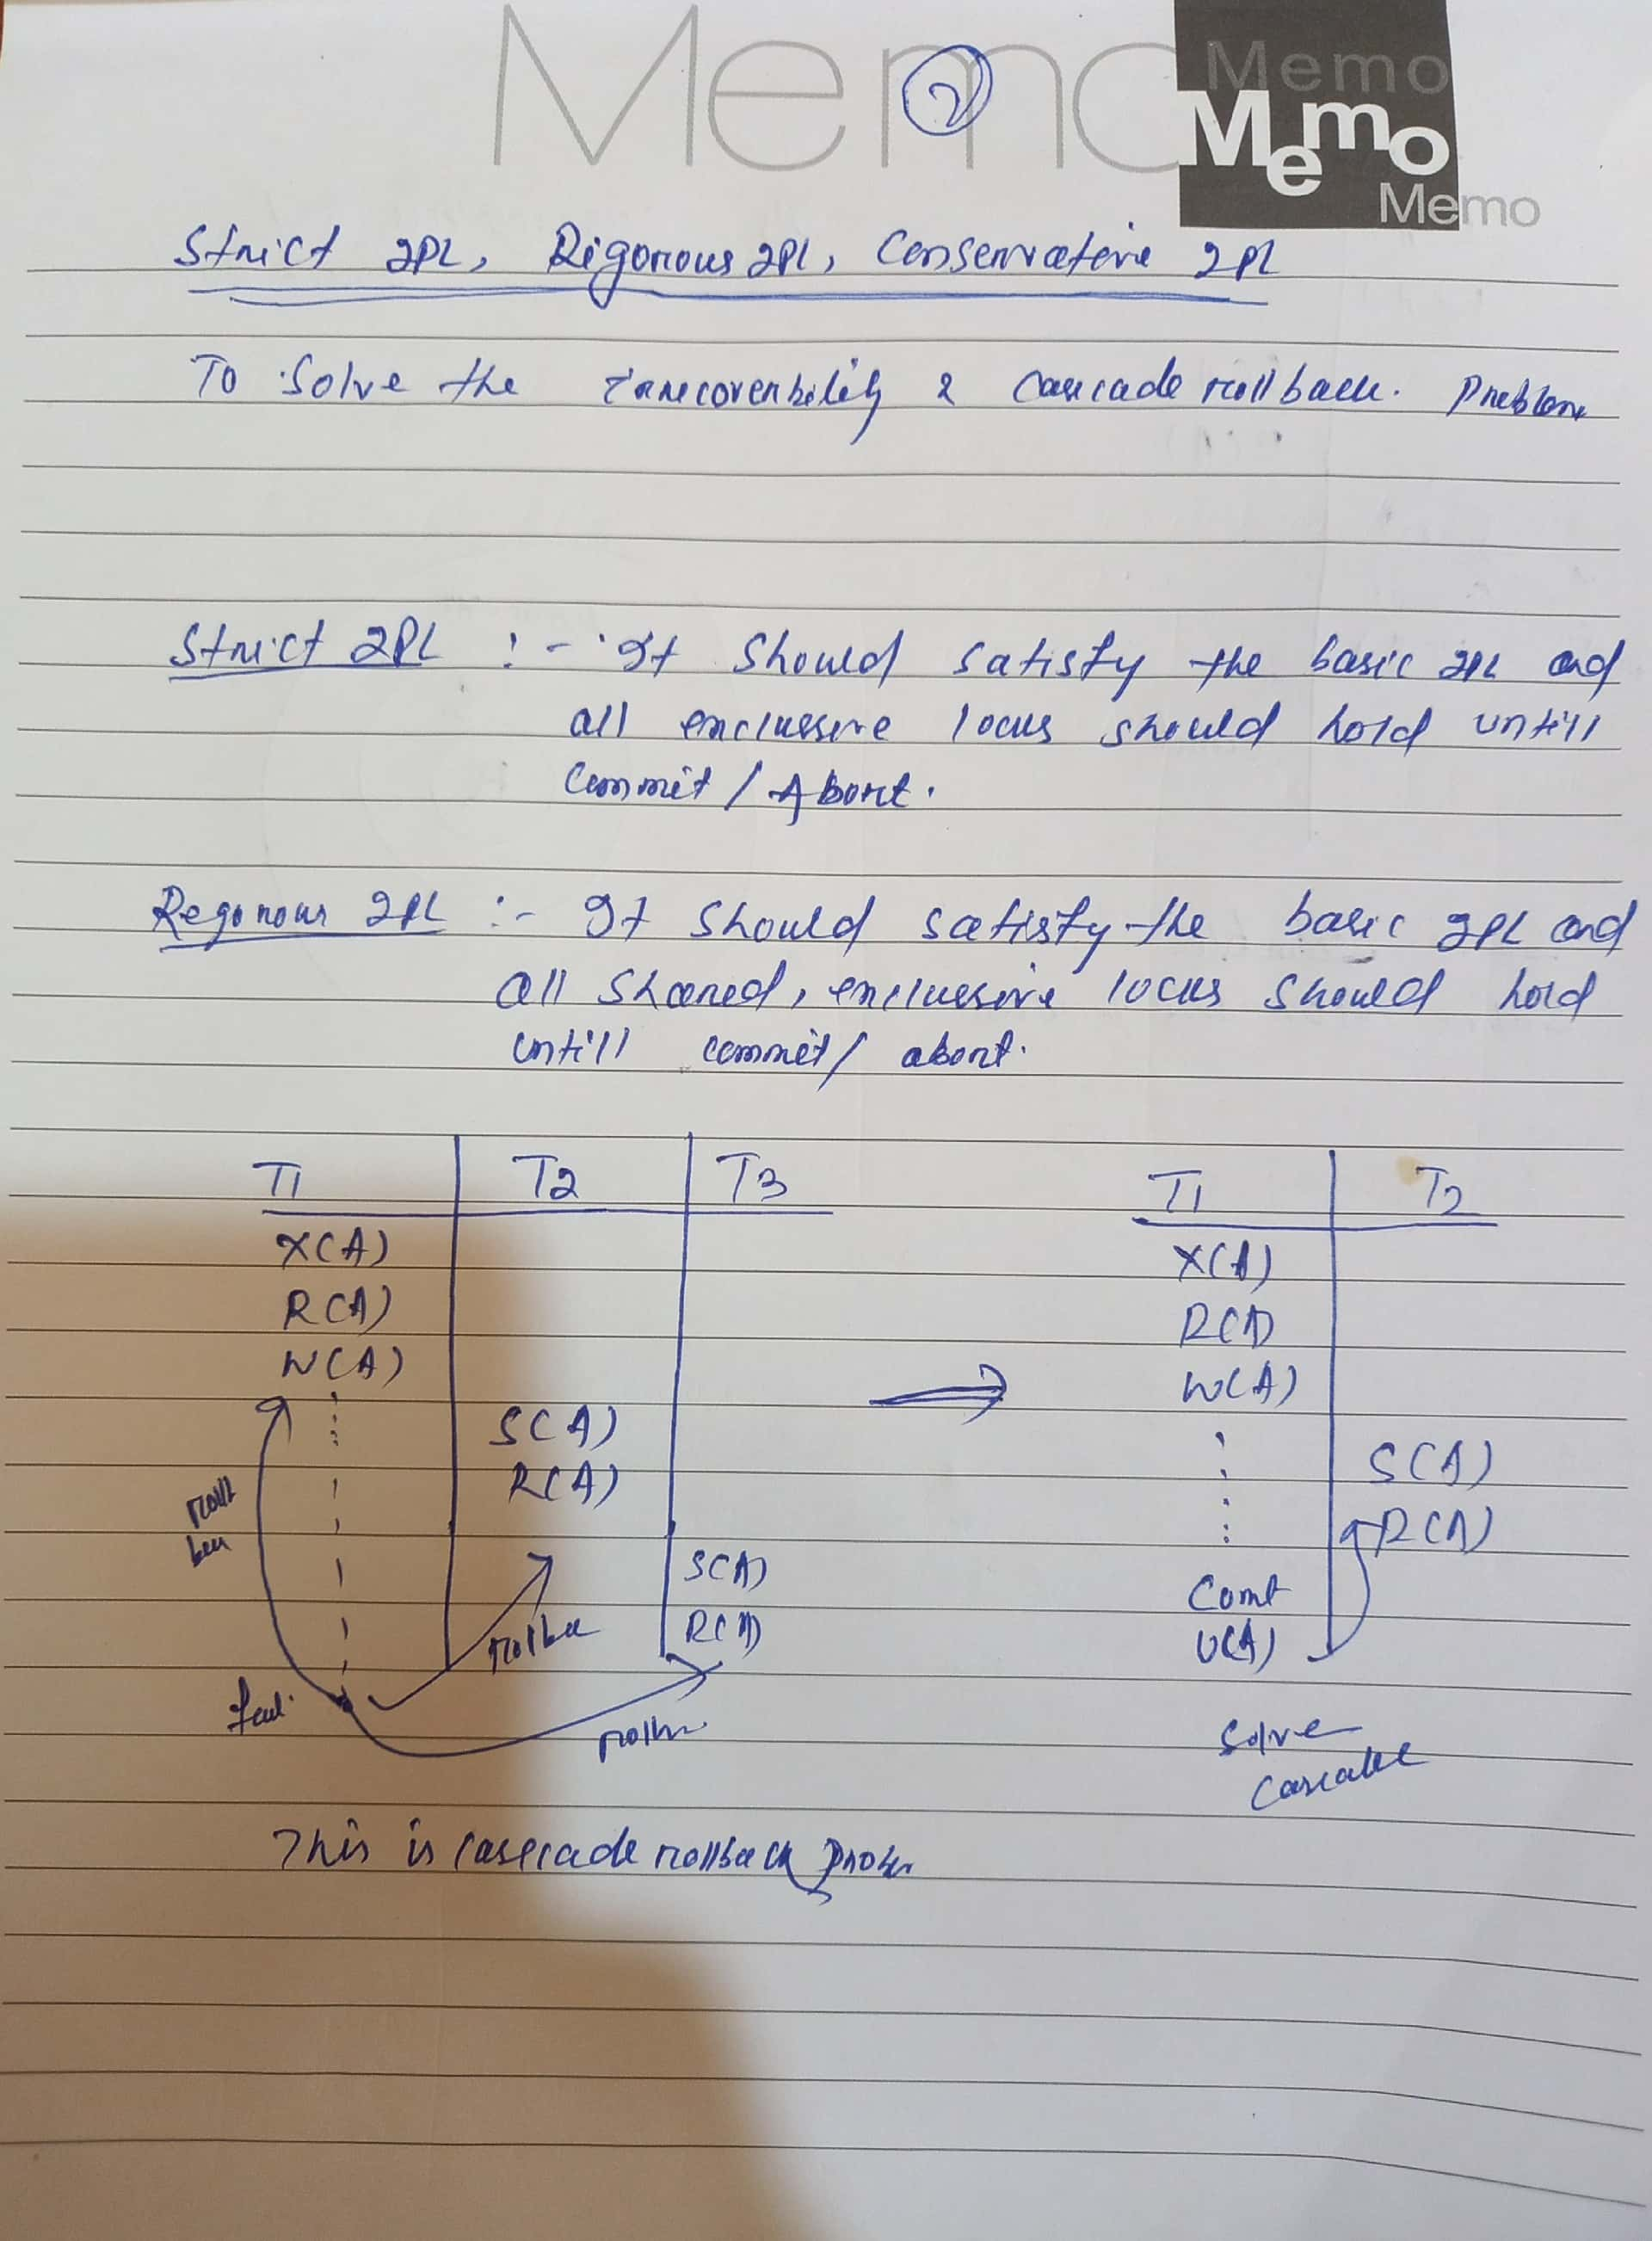 Memo
Memo
Memo
Memo
Strict 2PL, Rigorous 2PL, Conservative 2PL
To Solve the irrecoverability & Cascade rollback. Problem
Strict 2PL :- It Should satisfy the basic 2PL and
all exclussive locks should hold untill
Commit / Abort.
Regorous 2PL :- It Should satisfy the basic 2PL and
all Shared, exclussive locks should hold
untill commit / abort.
T1 T2 T3
X(A)
R(A)
W(A)
S(A)
R(A)
S(A)
R(A)
rollba
fail
This is cascade rollback
T1 T2
X(A)
R(A)
W(A)
S(A)
R(A)
Comt
U(A)
Solve
Cascade